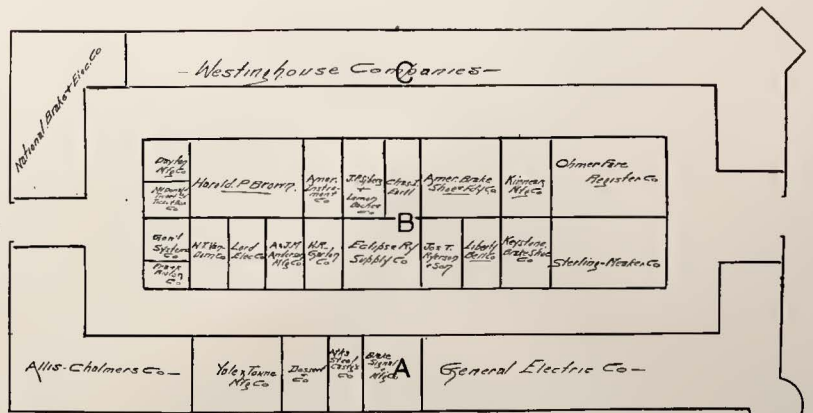 National Brake & Elec. Co
- Westinghouse Companies -
C
Dayton
Mfg Co
Harold P Brown.
Amer.
Instru-
ment
Co
Chas. I.
Earll
Amer. Brake
Shoe & Fdy Co
Kinnear
Mfg Co
Ohmer Fare
Register Co
McDonald
Co
B
Gen'l
Systems
Co
Frank
Ridlon
Co
W.T. Van
Dorn Co
Lord
Elec Co
A & J M
Anderson
Mfg Co
W.R.
Garton
Co
Eclipse Ry
Supply Co
Jos T.
Ryerson
& Son
Liberty
Bell Co
Keystone
Brake Shoe
Co
Sterling-Meaker Co
Allis-Chalmers Co -
Yale & Towne
Mfg Co
Dossert
& Co
Steel
Cast'g's
Co
Brake
Signal
Mfg Co
A
General Electric Co -